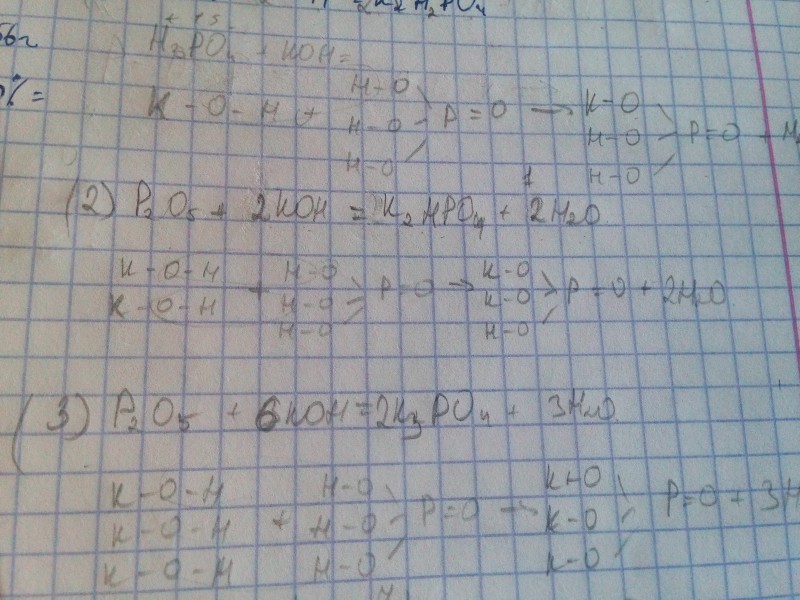 56г
H3PO4 + KOH =
% =
H-O
K-O-H + H-O P=O → K-O H-O H-O P=O + H
H-O
(2) P2O5 + 2KOH = K2HPO4 + 2H2O
K-O-H + H-O P=O → K-O P=O + 2H2O
K-O-H H-O K-O
H-O H-O
(3) P2O5 + 6KOH = 2K3PO4 + 3H2O
K-O-H H-O K-O
K-O-H + H-O P=O → K-O P=O + 3H
K-O-H H-O K-O